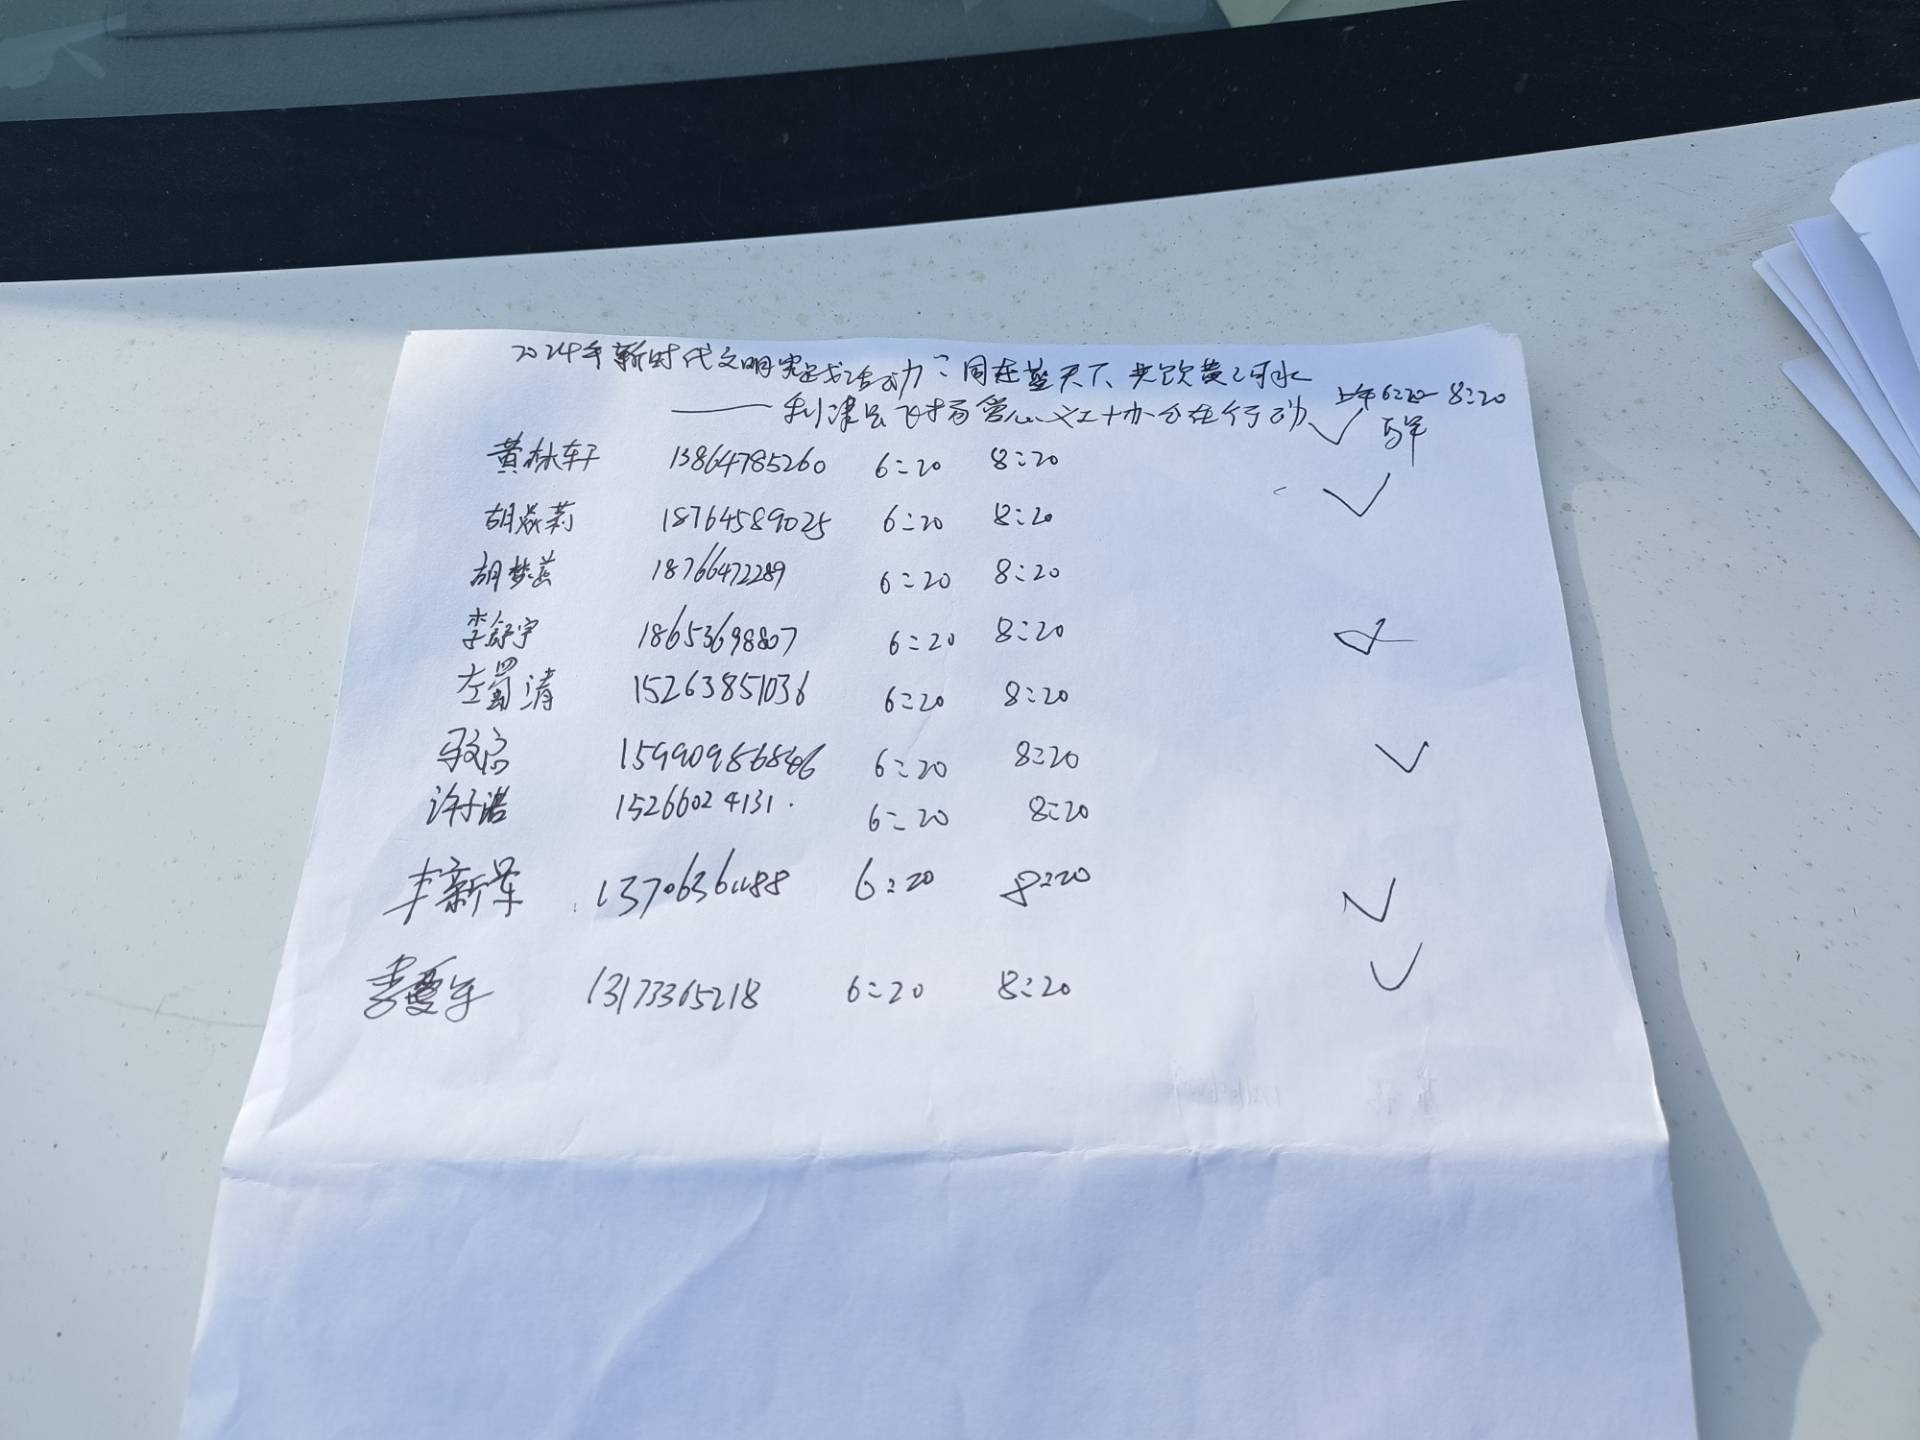 2024年新时代文明实践活动：同在蓝天下 共饮黄河水
——利津县飞扬爱心义工协会在行动 上午6:20-8:20
黄林轩子 13864785260 6:20 8:20 ✓
胡焱莉 18764589025 6:20 8:20 ✓
胡梦蕊 18766472289 6:20 8:20
李舒宇 18653698807 6:20 8:20
左蜀清 15263851036 6:20 8:20
15990986846 6:20 8:20 ✓
许子湛 15266024131 6:20 8:20
丰新景 6:20 8:20 ✓
李爱军 13173365218 6:20 8:20 ✓